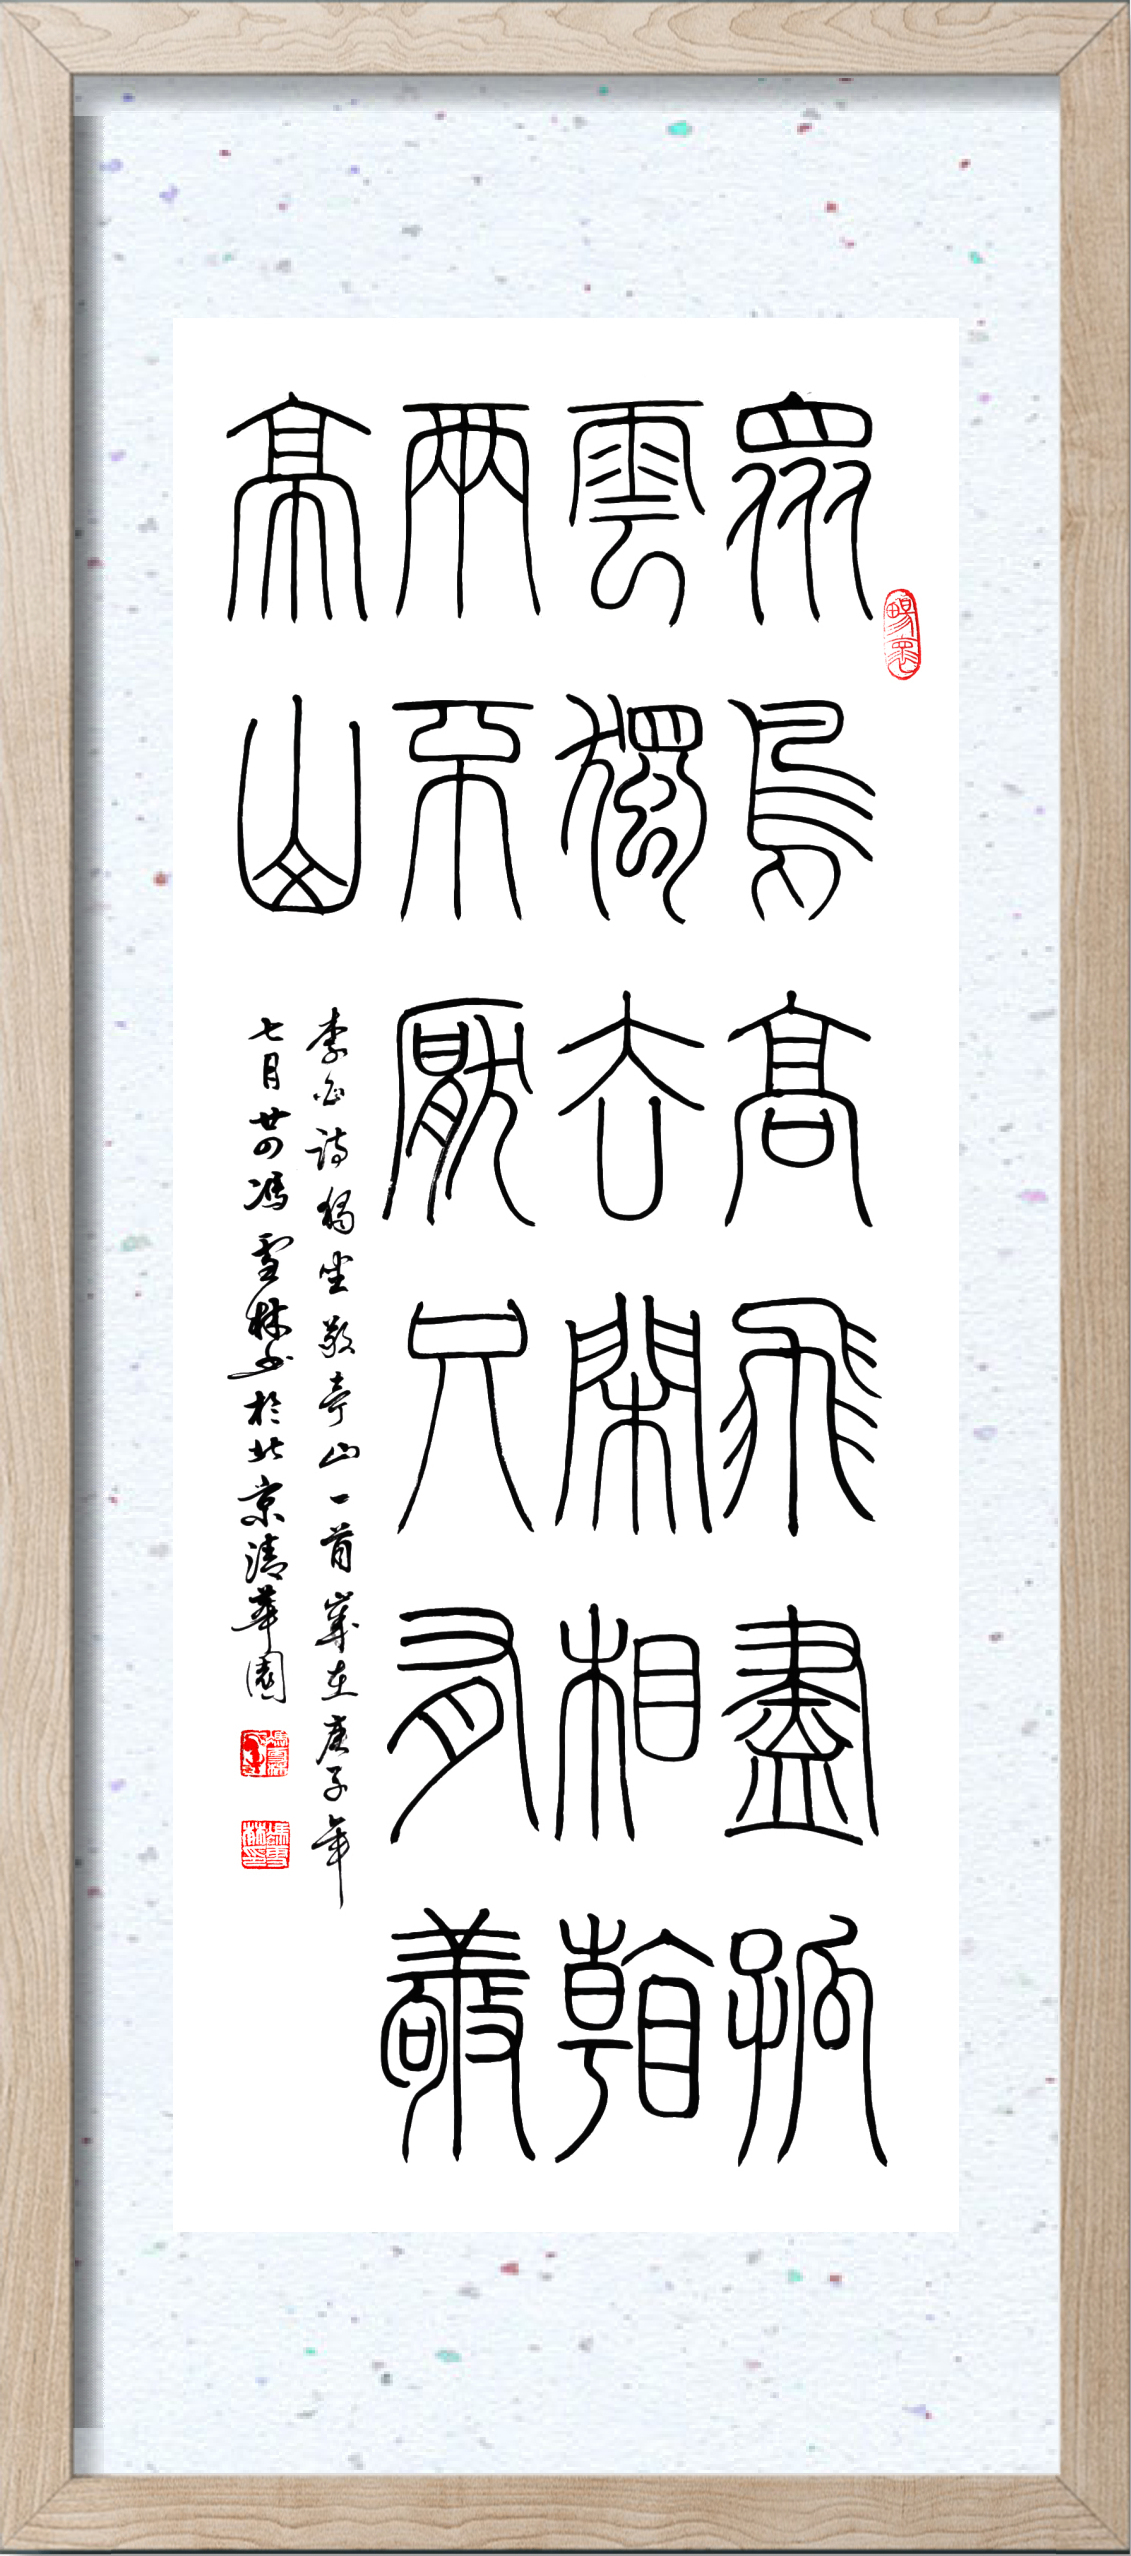 眾鳥高飛盡孤
雲獨去閑相看
兩不厭只有敬
亭山
李白詩獨坐敬亭山一首歲在庚子年
七月廿四馮雪林書於北京清華園